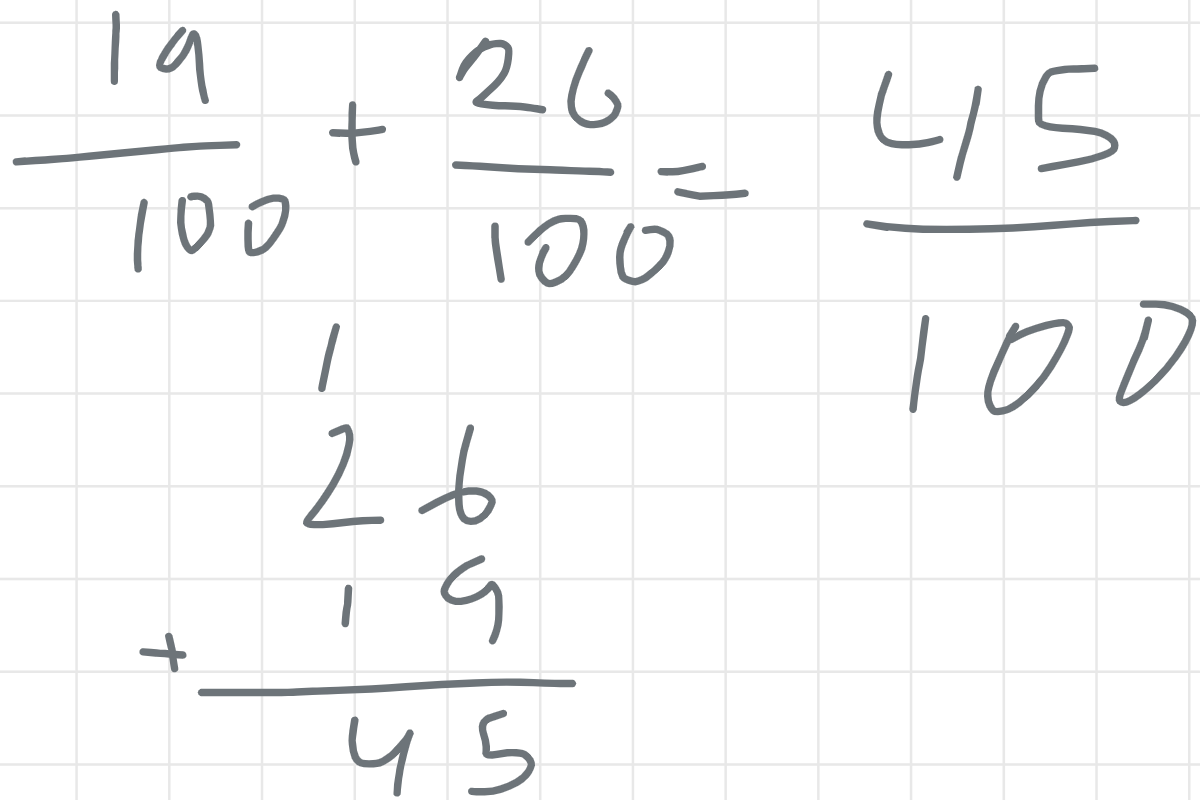 19/100 + 26/100 = 45/100
1
26
+ 19
45